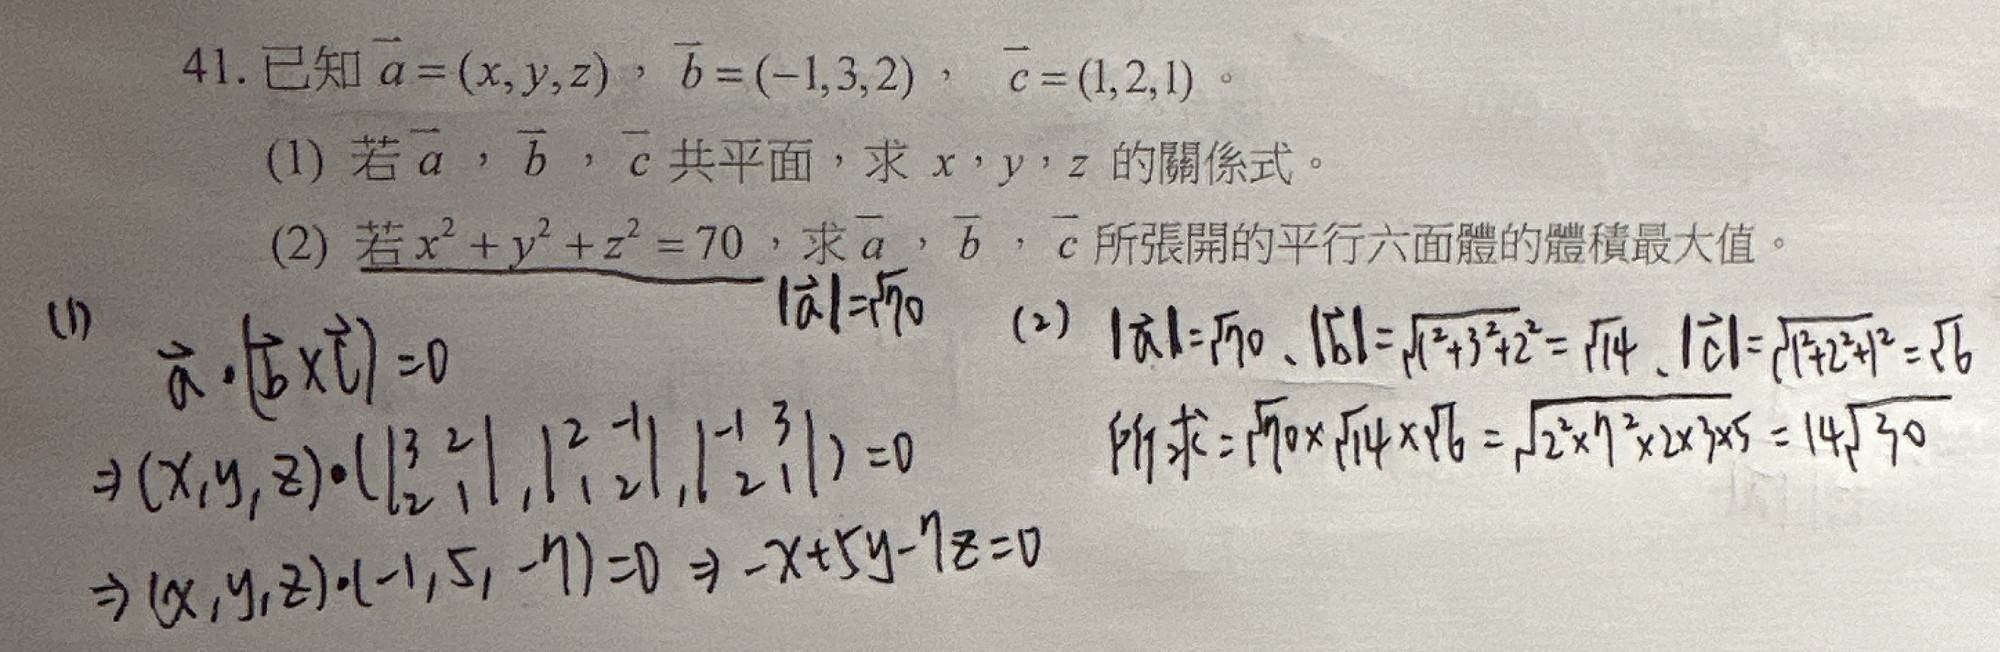 41. 已知 a⃗ = (x, y, z)，b⃗ = (−1, 3, 2)，c⃗ = (1, 2, 1)。
(1) 若 a⃗，b⃗，c⃗ 共平面，求 x，y，z 的關係式。
(2) 若 x² + y² + z² = 70，求 a⃗，b⃗，c⃗ 所張開的平行六面體的體積最大值。
|a⃗|=√70
(1)
a⃗·(b⃗×c⃗)=0
⇒(x,y,z)·(|3 2; 2 1|,|2 -1; 1 2|,|-1 3; 2 1|)=0
⇒(x,y,z)·(-1,5,-7)=0 ⇒ -x+5y-7z=0
(2) |a⃗|=√70、|b⃗|=√(1²+3²+2²)=√14、|c⃗|=√(1²+2²+1²)=√6
所求=√70×√14×√6=√(2²×7²×2×3×5)=14√30